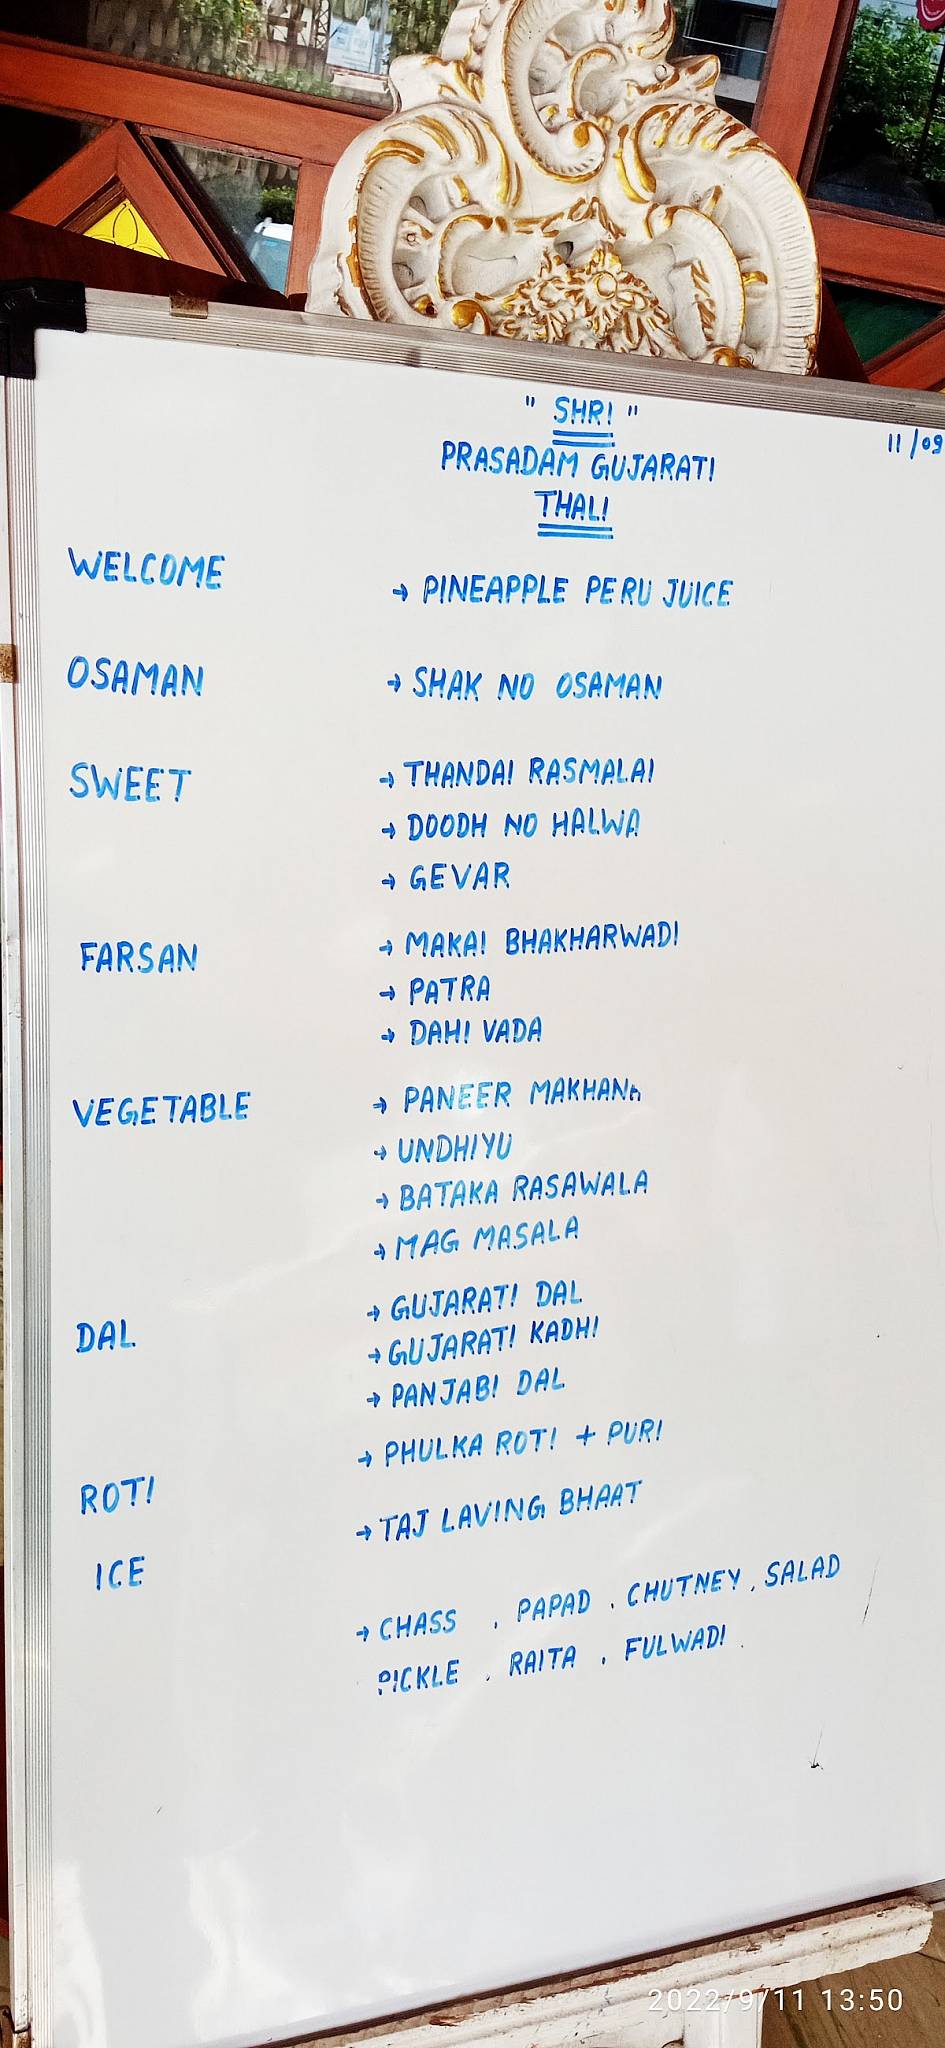 " SHRI "
11/09
PRASADAM GUJARATI
THALI
WELCOME → PINEAPPLE PERU JUICE
OSAMAN → SHAK NO OSAMAN
SWEET → THANDAI RASMALAI
→ DOODH NO HALWA
→ GEVAR
FARSAN → MAKAI BHAKHARWADI
→ PATRA
→ DAHI VADA
VEGETABLE → PANEER MAKHANA
→ UNDHIYU
→ BATAKA RASAWALA
→ MAG MASALA
DAL → GUJARATI DAL
→ GUJARATI KADHI
→ PANJABI DAL
ROTI → PHULKA ROTI + PURI
ICE → TAJ LAVING BHAAT
→ CHASS , PAPAD , CHUTNEY , SALAD
PICKLE , RAITA , FULWADI .
2022/9/11 13:50